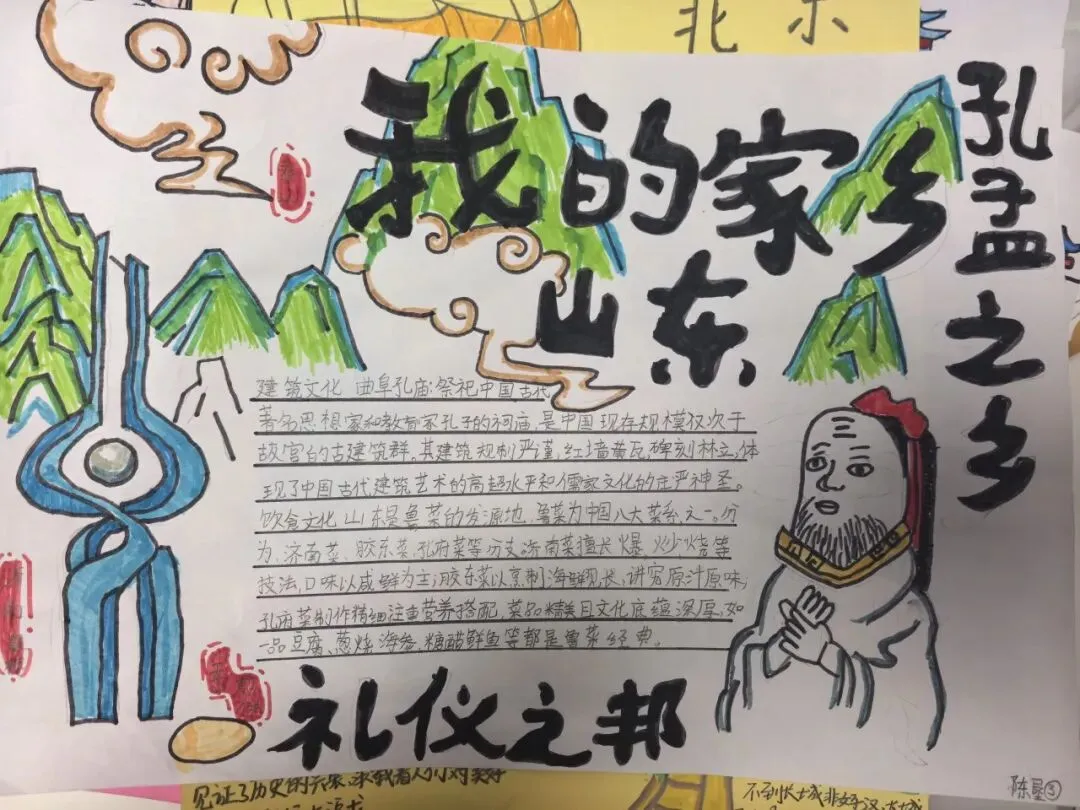 北京
我的家乡
山东
孔孟之乡
建筑文化 曲阜孔庙:祭祀中国古代
著名思想家和教育家孔子的祠庙,是中国现存规模仅次于
故宫的古建筑群。其建筑规制严谨,红墙黄瓦,碑刻林立,体
现了中国古代建筑艺术的高超水平和儒家文化的庄严神圣。
饮食文化 山东是鲁菜的发源地,鲁菜为中国八大菜系之一。分
为济南菜、胶东菜、孔府菜等分支。济南菜擅长爆、炒、烧等
技法,口味以咸鲜为主;胶东菜以烹制海鲜见长,讲究原汁原味;
孔府菜制作精细注重营养搭配,菜品精美且文化底蕴深厚,如
一品豆腐、葱烧海参、糖醋鲤鱼等都是鲁菜经典。
礼仪之邦
陈垦③
见证了历史的兴衰、承载着人们对美好
不到长城非好汉